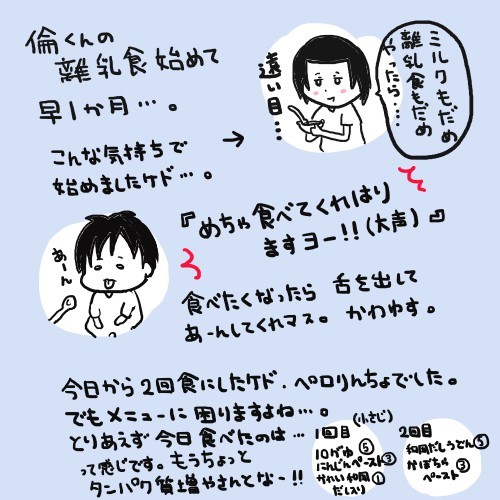 倫くんの
離乳食始めて
早1か月…。
こんな気持ちで
始めましたケド…。
→
遠い目…
ミルクもだめ
離乳食もだめ
やったら…
『めちゃ食べてくれはり
ますヨー!!(大声)』
あーん
食べたくなったら 舌を出して
あーんしてくれマス。かわゆす。
今日から2回食にしたケド、ペロリんちょでした。
でもメニューに困りますよね…。
とりあえず今日食べたのは…
って感じです。もうちょっと
タンパク質増やさんとなー!!
(小さじ)
1回目
10がゆ⑤
にんじんペースト③
かれい和風①
だし入り
2回目
和風だしうどん⑤
かぼちゃ③
ペースト